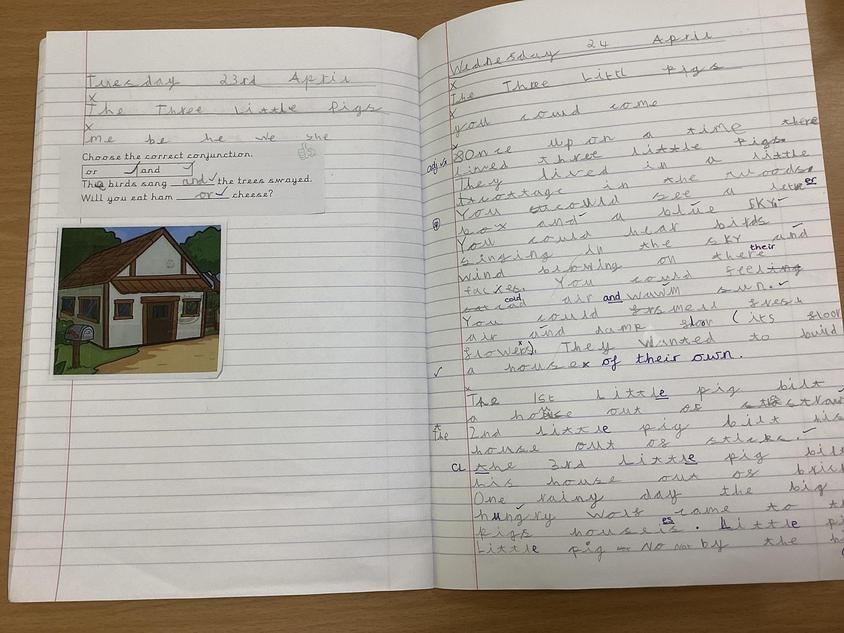 Tuesday 23rd April
The Three Little Pigs
me be he we she
Choose the correct conjunction.
or and
The birds sang and the trees swayed.
Will you eat ham or cheese?
Wednesday 24 April
The Three Littl Pigs
you could come
adjvs
Once upon a time there
lived three little pigs.
They lived in a little
cottage in the woods
You could see a letter
box and a blue sky
You could hear birds
singing in the sky and
wind blowing on there their
faces. You could feeling
cold air and wawm sun.
You could smell fresh
air and damp floor (its floor
flowers). They wanted to build
a house of their own.
The 1st little pig bilt
a house out of straw
The 2nd little pig bilt his
house out of sticks.
CL the 3rd little pig bilt
his house out of bric
One rainy day the big
hungry wolf came to th
pigs houses. Little pi
Little pig - No not by the h